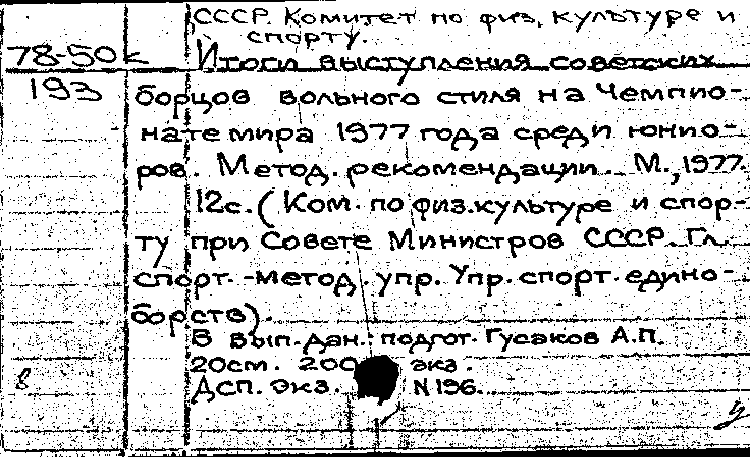 СССР. Комитет по физ, культуре и
спорту.
78-50к Итоги выступления советских
193 борцов вольного стиля на Чемпио-
нате мира 1977 года среди юнио-
ров. Метод. рекомендации. М., 1977.
12с. (Ком. по физ.культуре и спор-
ту при Совете Министров СССР. Гл.
спорт.-метод. упр. Упр. спорт. едино-
борств).
В вып. дан.: подгот. Гусаков А.П.
20см. 200 экз.
Дсп. Экз. N196.
8